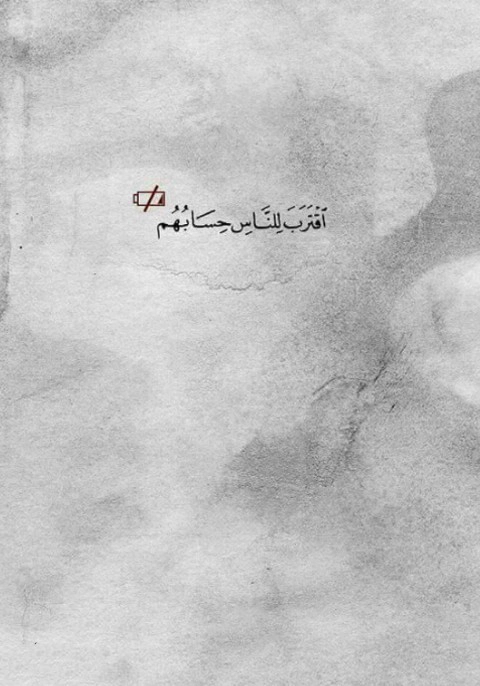 ٱقْتَرَبَ لِلنَّاسِ حِسَابُهُم